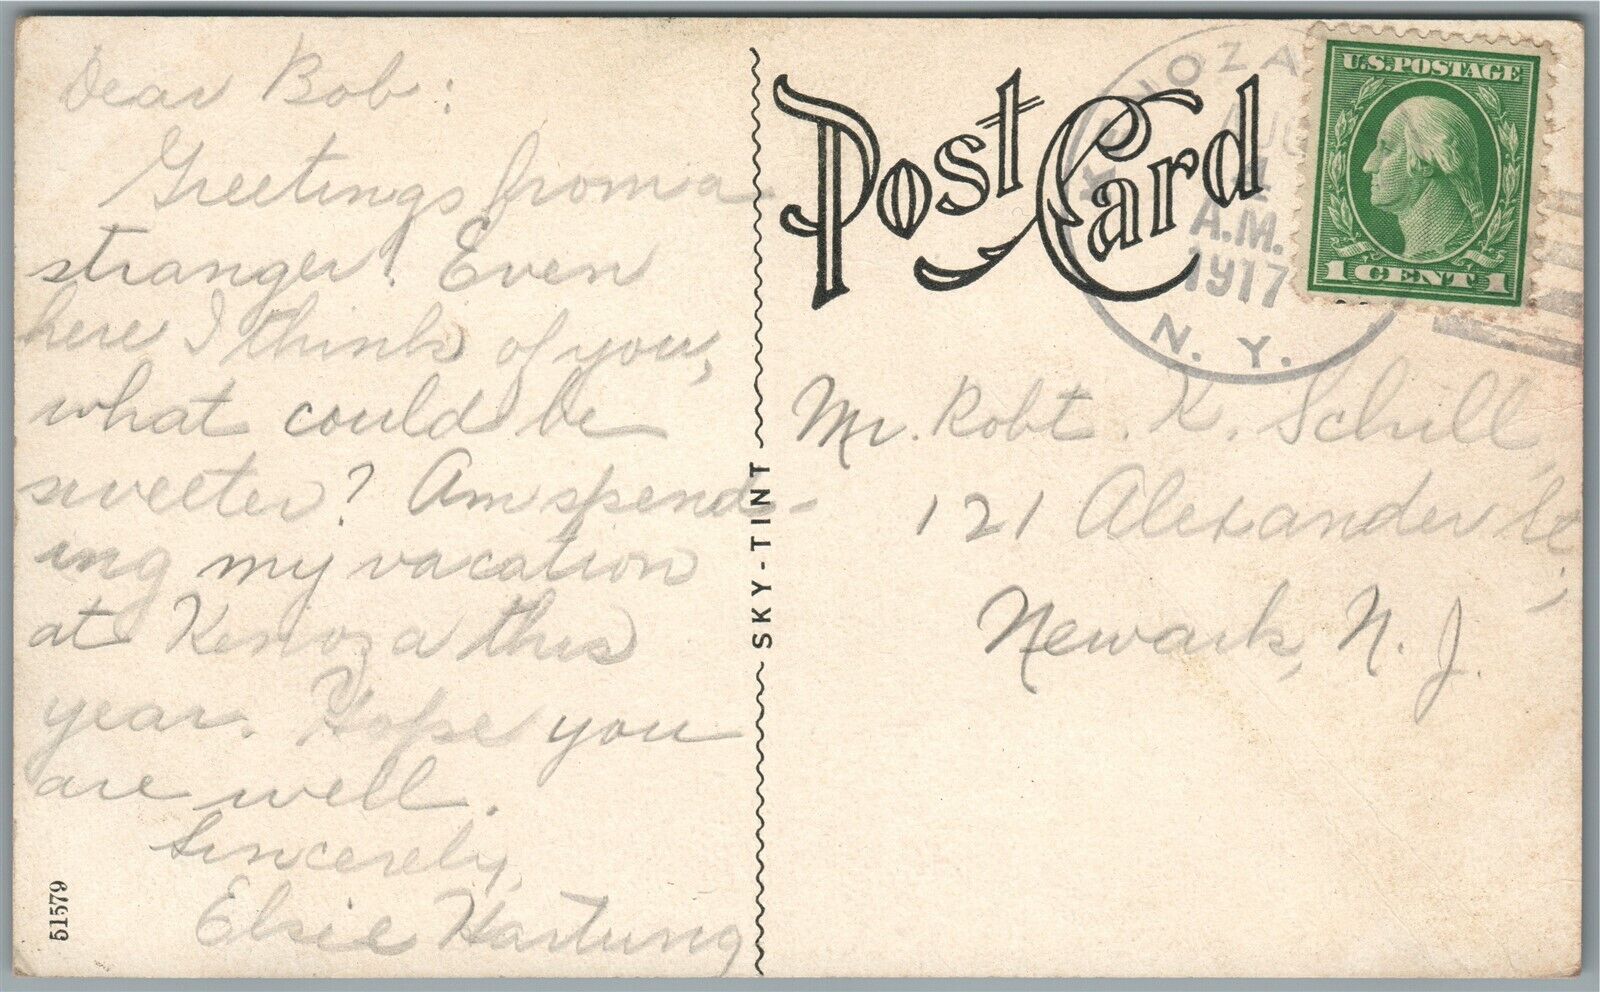 Dear Bob:
Greetings from a
stranger! Even
here I think of you,
what could be
sweeter? Am spend-
ing my vacation
at Kenoza this
year. Hope you
are well.
Sincerely,
Elsie Hartung
51579
SKY-TINT
Post Card
NOZA
AUG
1
A.M.
1917
N. Y.
U.S. POSTAGE
1 CENT 1
Mr. Robt. K. Schill,
121 Alexander St,
Newark, N. J.